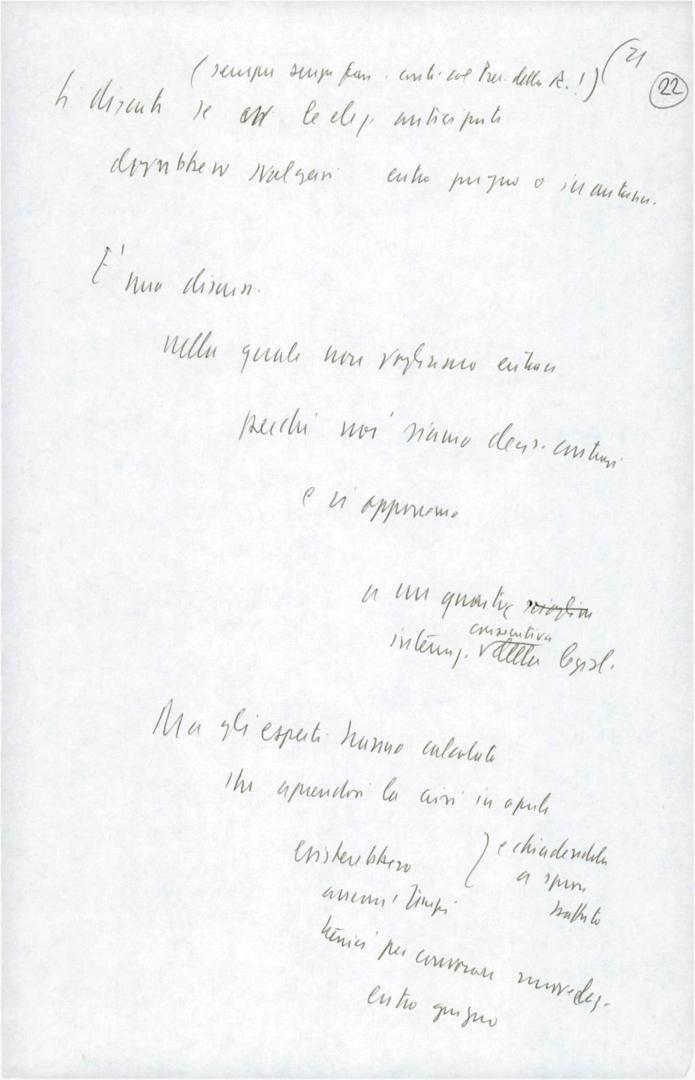 (21
22
(sempre senza fare i conti col Pres. della R.!)
Si discute se le elez. anticipate
dovrebbero svolgersi entro giugno o in autunno.
E' una discuss.
nella quale non vogliamo entrare
perché noi siamo decis. contrari
e ci opponiamo
a un quarta
interruz. consecutiva della legisl.
Ma gli esperti hanno calcolato
che aprendosi la crisi in aprile
e chiudendola
a spron
battuto
esisterebbero
ancora i tempi
tecnici per convocare nuove elez.
entro giugno